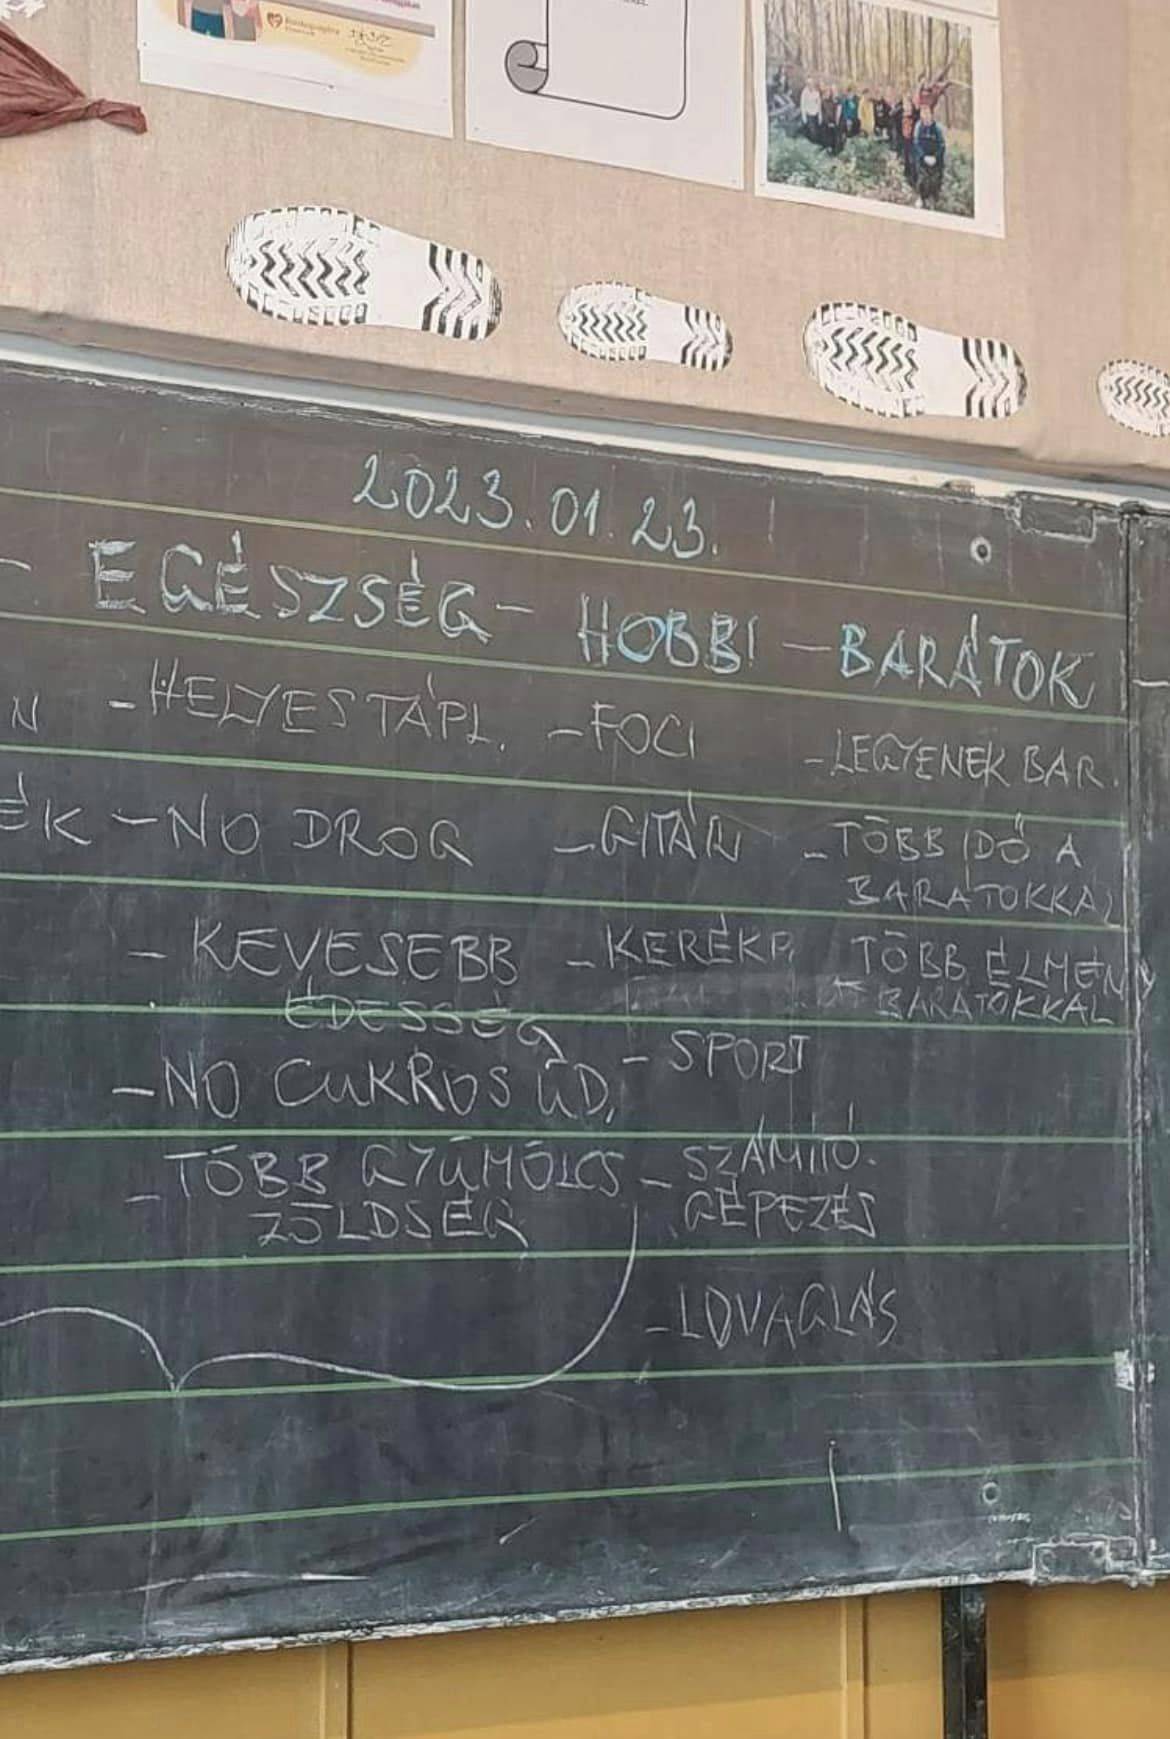 2023.01.23.
- EGÉSZSÉG - HOBBI - BARÁTOK
N - HELYES TÁPL. - FOCI - LEGYENEK BAR.
ÉK - NO DROG - GITÁR - TÖBB IDŐ A
BARÁTOKKAL
- KEVESEBB - KERÉKP. - TÖBB ÉLMÉNY
ÉDESSÉG BARÁTOKKAL
- NO CUKROS ÜD. - SPORT
- TÖBB GYÜMÖLCS - SZÁMÍTÓ-
ZÖLDSÉG GÉPEZÉS
- LOVAGLÁS